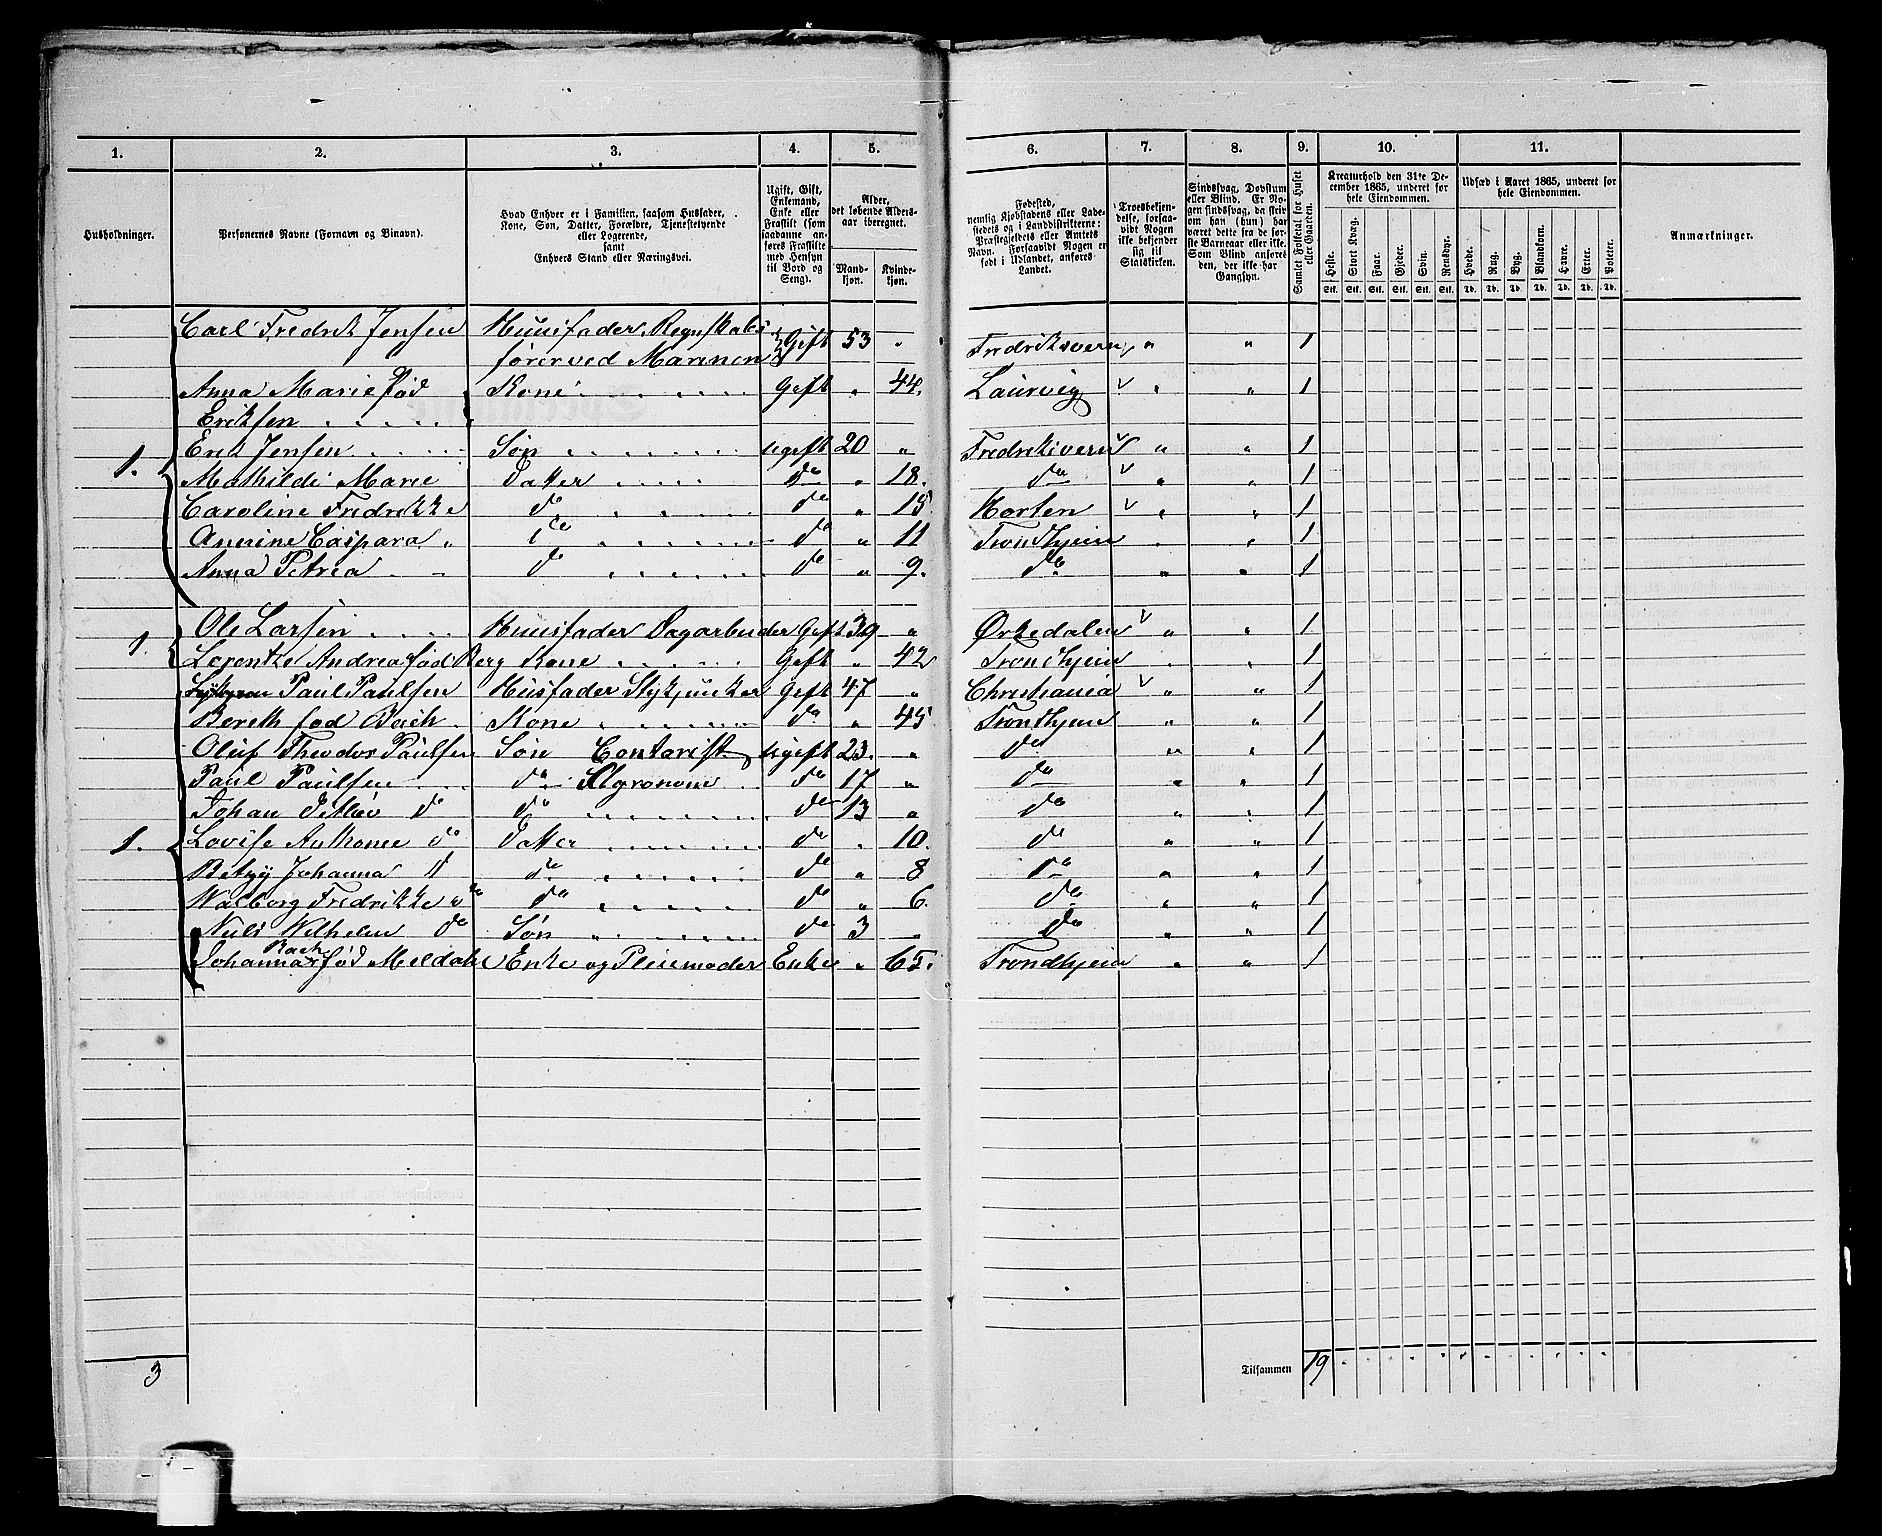 1. 2. 3. 4. 5. 6. 7. 8. 9. 10. 11.
Husholdninger.
Personernes Navne (Fornavn og Binavn).
Hvad Enhver er i Familien, saasom Husfader,
Kone, Søn, Datter, Forældre, Tjenestetyende
eller Logerende,
samt
Enhvers Stand eller Næringsvei.
Ugift, Gift,
Enkemand,
Enke eller
Fraskilt (som
saadanne anføres
Fraskilte
med Hensyn
til Bord og
Seng).
Alder,
det løbende Alders-
aar iberegnet.
Mand-
kjøn.
Kvinde-
kjøn.
Fødested,
nemlig Kjøbstadens eller Lade-
stedets og i Landdistrikterne:
Præstegjeldets eller Amtets
Navn. Forsaavidt Nogen er
født i Udlandet, anføres
Landet.
Troesbekjen-
delse, forsaa-
vidt Nogen
ikke bekjender
sig til
Statskirken.
Sindssvag, Døvstum
eller Blind. Er No-
gen sindssvag, da skriv
om han (hun) har
været dette fra de før-
ste Barneaar eller ikke.
Som Blind anføres
den, der ikke har
Gangsyn.
Samlet Folketal for Huset
eller Gaarden.
Kreaturhold den 31te De-
cember 1865, underet for
hele Eiendommen.
Heste. Stort Kvæg. Faar. Gjeder. Svin. Rensdyr.
Stk. Stk. Stk. Stk. Stk. Stk.
Udsæd i Aaret 1865, underet for
hele Eiendommen.
Hvede. Rug. Byg. Blandkorn. Havre. Erter. Poteter.
Td. Td. Td. Td. Td. Td. Td.
Anmærkninger.
Carl Fredrik Jensen Huusfader, Regnskabs
fører ved Marinen Gift 53 " Fredriksværn " " 1
Anna Marie fød Kone Gift " 44. Laurvig " " 1
Eriksen
1. Erik Jensen Søn Ugift 20 " Fredriksværn " " 1
Mathilde Marie Datter do " 18. do " " 1
Caroline Fredrikke do do " 15 Horten " " 1
Anerine Caspara do do " 11 Trondhjem " " 1
Anna Petrea do do " 9. do " " 1
1. Ole Larsen Huusfader Dagarbeider Gift 39 " Ørkedalen " " 1
Lorentze Andrea fød Berg Kone Gift " 42 Trondhjem " " 1
Paul Paulsen Husfader Stykjunker Gift 47 " Christiania " " 1
Bereth fød Bach Kone do " 45 Trondhjem " " 1
Oluf Theodor Paulsen Søn Contorist Ugift 23. " do " " 1
Paul Paulsen do Agronom do 17 " do " " 1
Johan Detlev do do do 13 " do " " 1
1. Lovise Anthonie do Datter do " 10. do " " 1
Betzy Johanna d do do " 8 do " " 1
Walborg Fredrikke do do do " 6. do " " 1
Nils Wilhelm do Søn do 3 " do " " 1
Bach
Johanna fød Meldal Enke og Pleiemoder Enke " 65. Trondhjem " " 1
3 Tilsammen 19